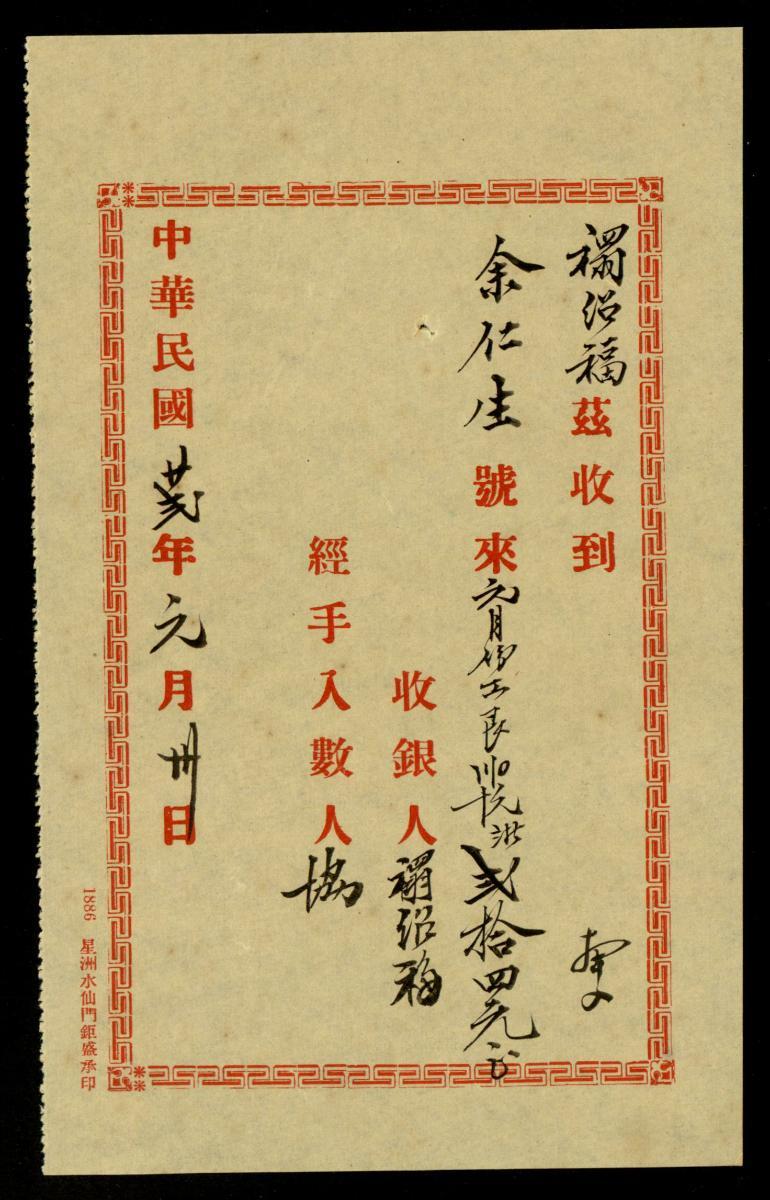 禤紹福茲收到
余仁生號來元月份工長㠭元洪弍拾四元正
收銀人禤紹福
經手入數人協
中華民國廿弍年元月卅日
1886 星洲水仙門鉅盛承印